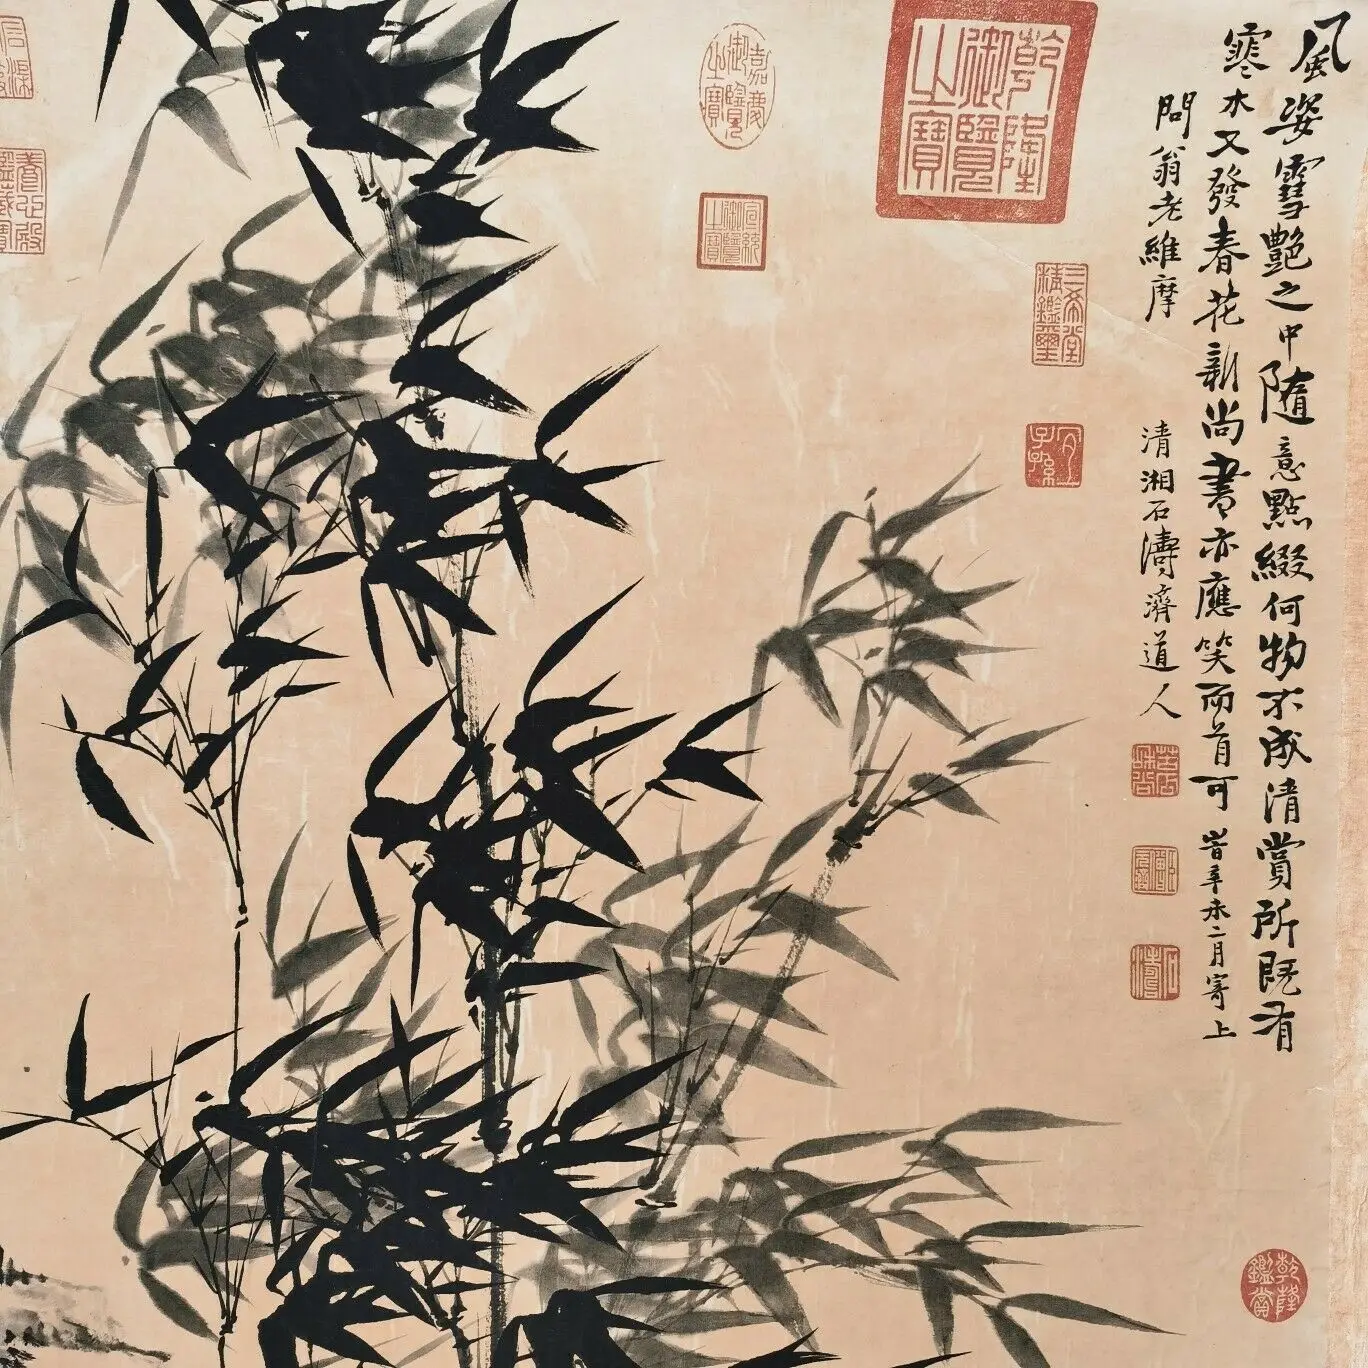 風姿雪艷之中隨意點綴何物不成清賞所既有
寒木又發春花新尚書亦應笑而首可 昔辛未二月寄上
問翁老維摩
清湘石濤濟道人
乾隆御覽之寶
嘉慶御覽之寶
宣統御覽之寶
三希堂精鑑璽
宜子孫
乾隆鑑賞
養心殿鑑藏寶